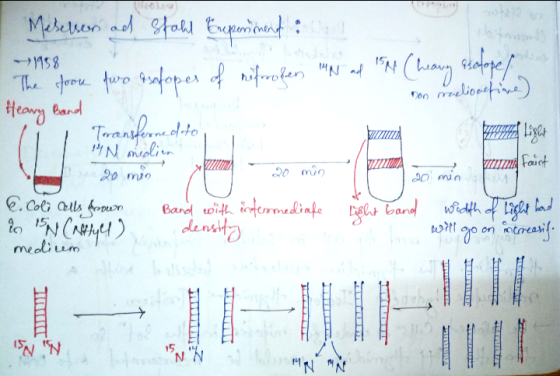 Meselson ad Stahl Experiment :
→ 1958
The took two isotopes of nitrogen ¹⁴N ad ¹⁵N (heavy isotope/
non radioactive)
Heavy Band
Transferred to
¹⁴N medium
20 min
20 min
20 min
Light
Faint
E. Coli Cells grown
in ¹⁵N (NH₄Cl)
medium
Band with intermediate
density
Light band
Width of light bad
will go on increasing.
¹⁵N ¹⁵N
¹⁵N ¹⁴N
¹⁴N ¹⁴N